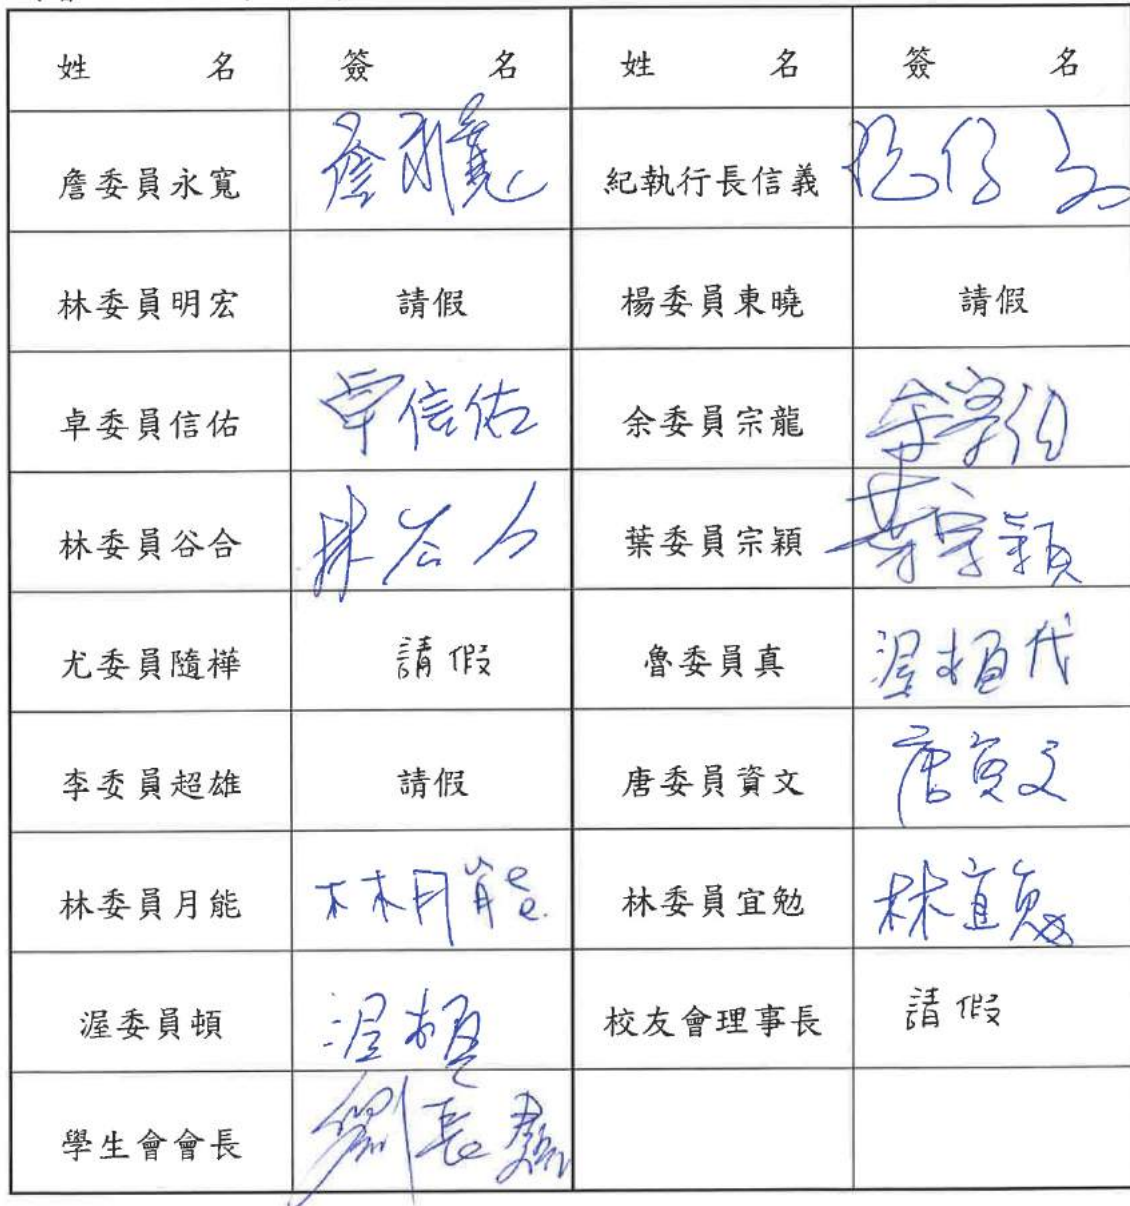 姓 名 簽 名 姓 名 簽 名
詹委員永寬 詹永寬 紀執行長信義 紀信義
林委員明宏 請假 楊委員東曉 請假
卓委員信佑 卓信佑 余委員宗龍 余宗龍
林委員谷合 林谷合 葉委員宗穎 葉宗穎
尤委員隨樺 請假 魯委員真 渥頓代
李委員超雄 請假 唐委員資文 唐資文
林委員月能 林月能 林委員宜勉 林宜勉
渥委員頓 渥頓 校友會理事長 請假
學生會會長 劉長